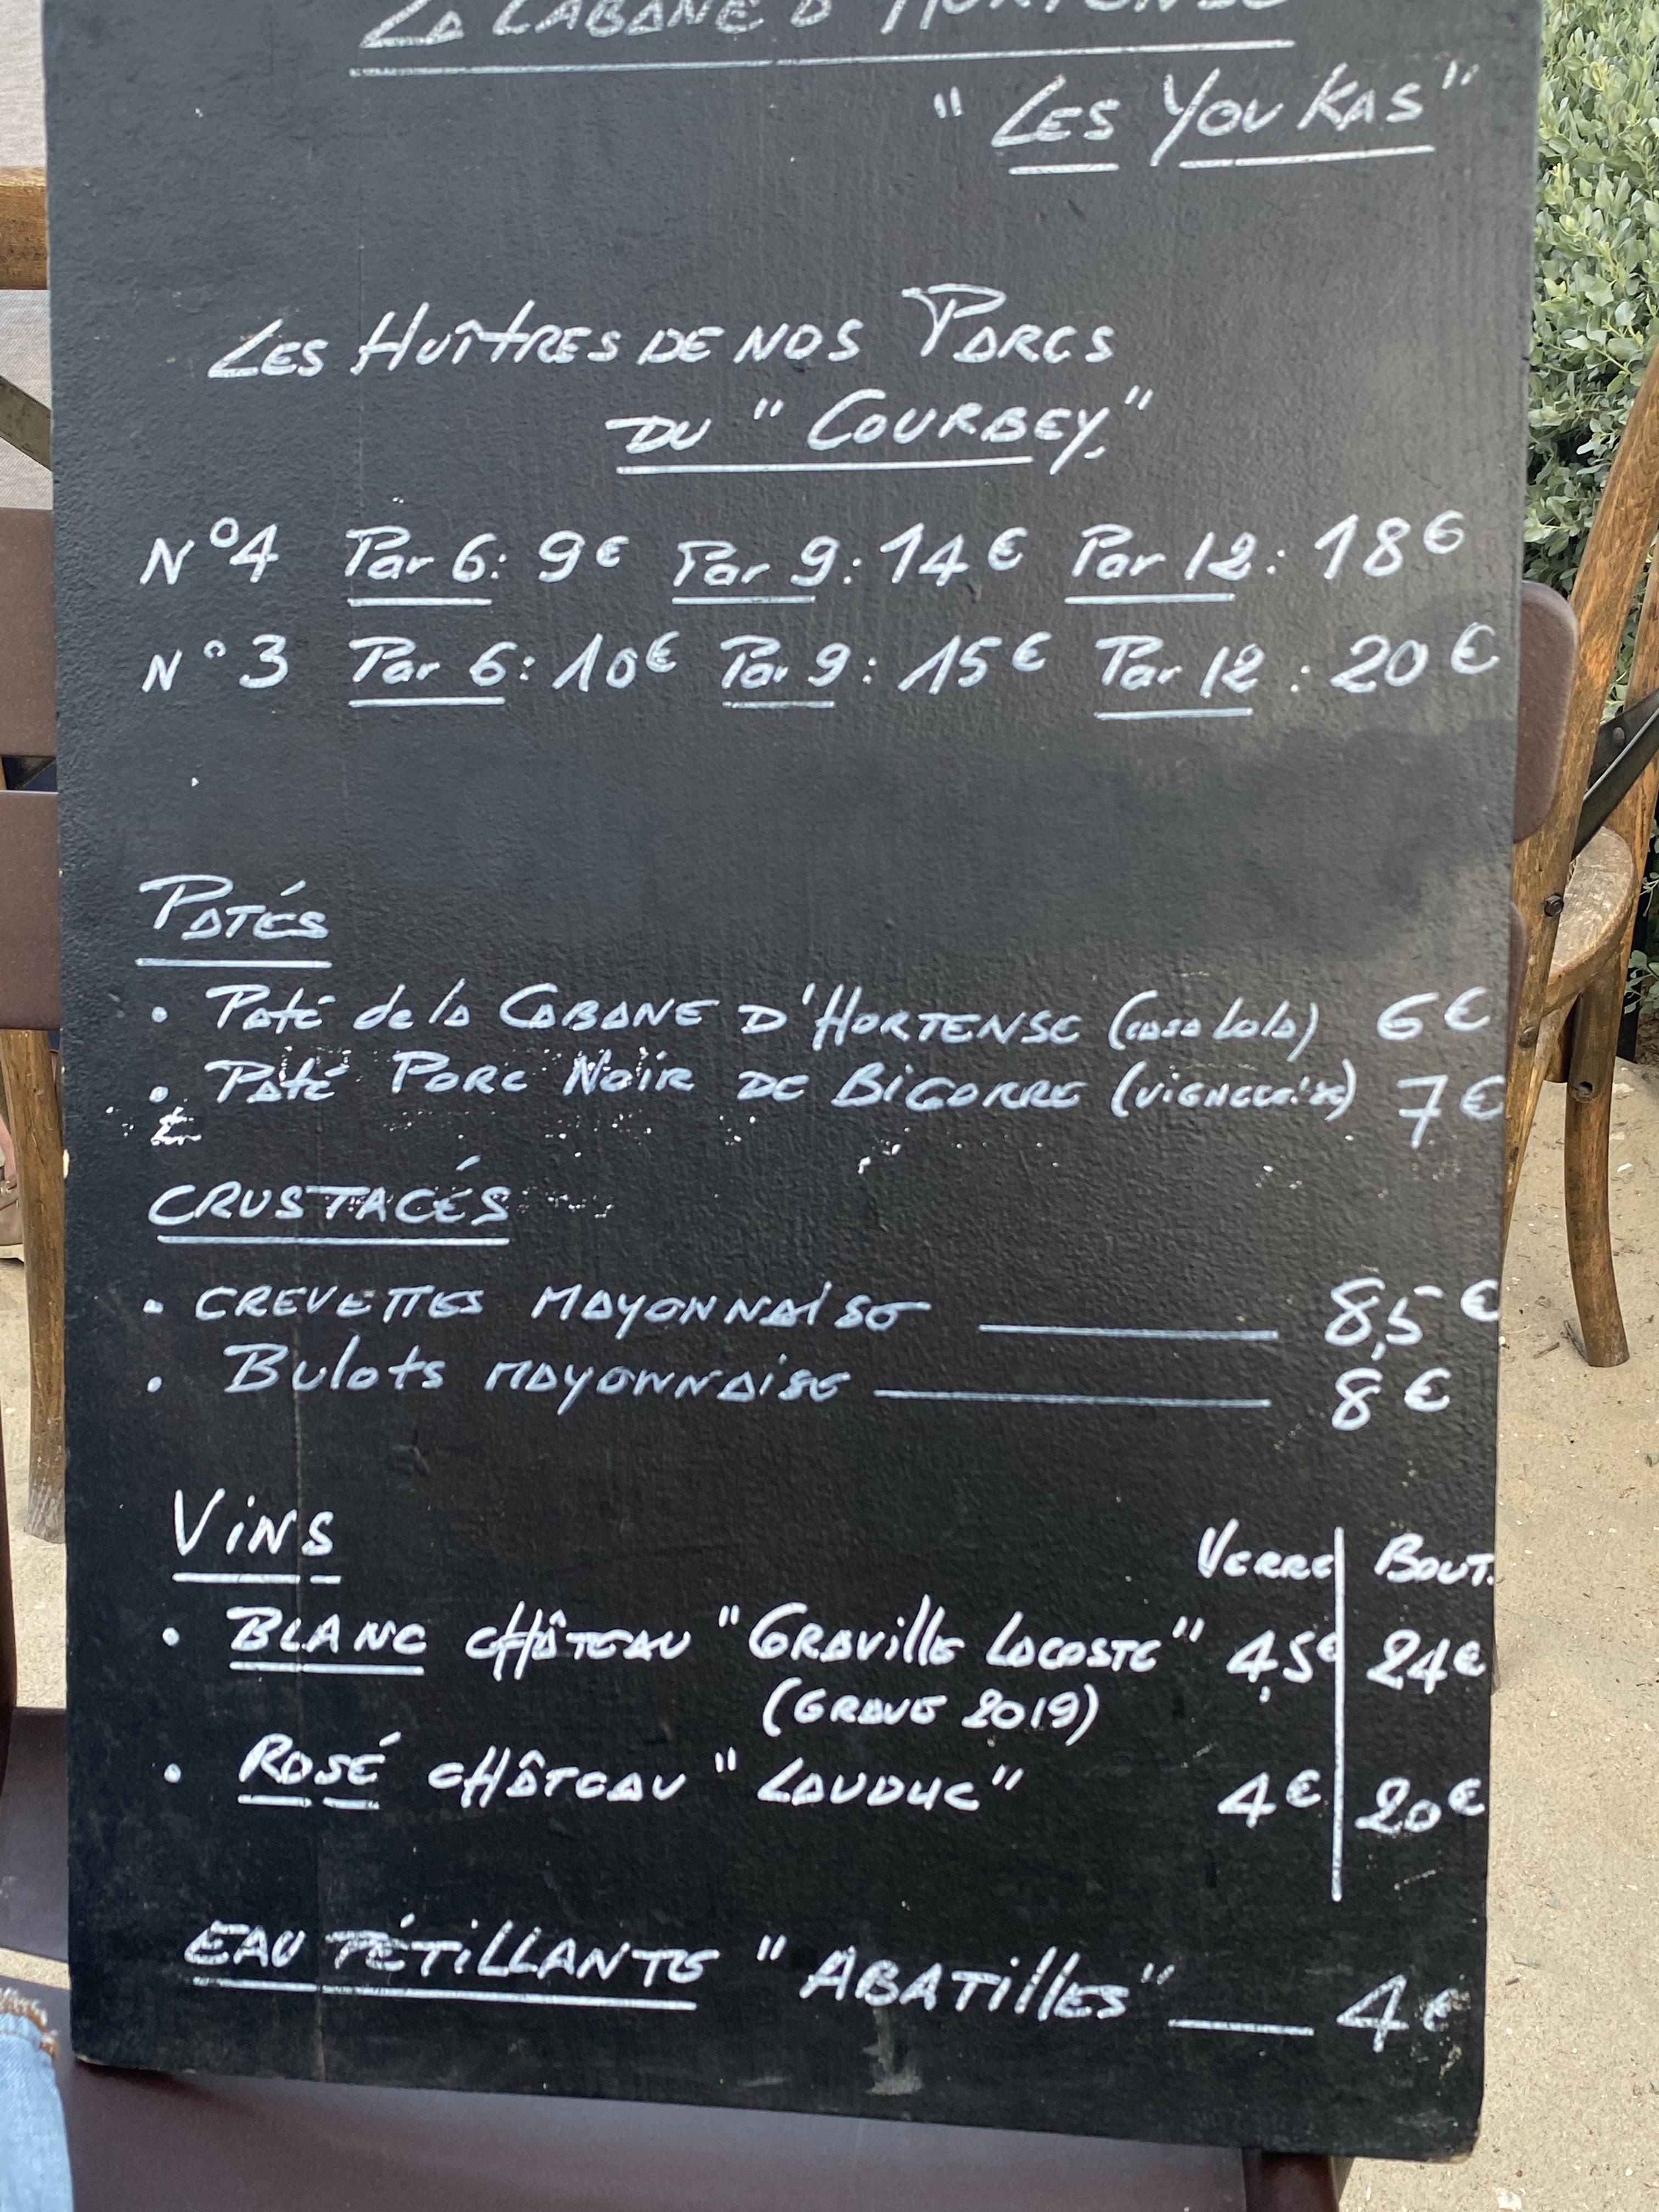 La CABANE D'HORTENSE
"LES YOUKAS"
LES HUÎTRES DE NOS PARCS
DU "COURBEY"
N°4 Par 6: 9€ Par 9: 14€ Par 12: 18€
N°3 Par 6: 10€ Par 9: 15€ Par 12: 20€
PATÉS
• Paté de la CABANE D'HORTENSE (casa Lola) 6€
• Paté PORC NOIR DE BIGORRE 7€
CRUSTACÉS
• CREVETTES MAYONNAISE 8,5€
• Bulots MAYONNAISE 8€
VINS VERRE BOUT.
• BLANC CHÂTEAU "GRAVILLE LACOSTE" 4,5€ 24€
(GRAVE 2019)
• ROSÉ CHÂTEAU "LAUDUC" 4€ 20€
EAU PÉTILLANTE "ABATILLES" 4€